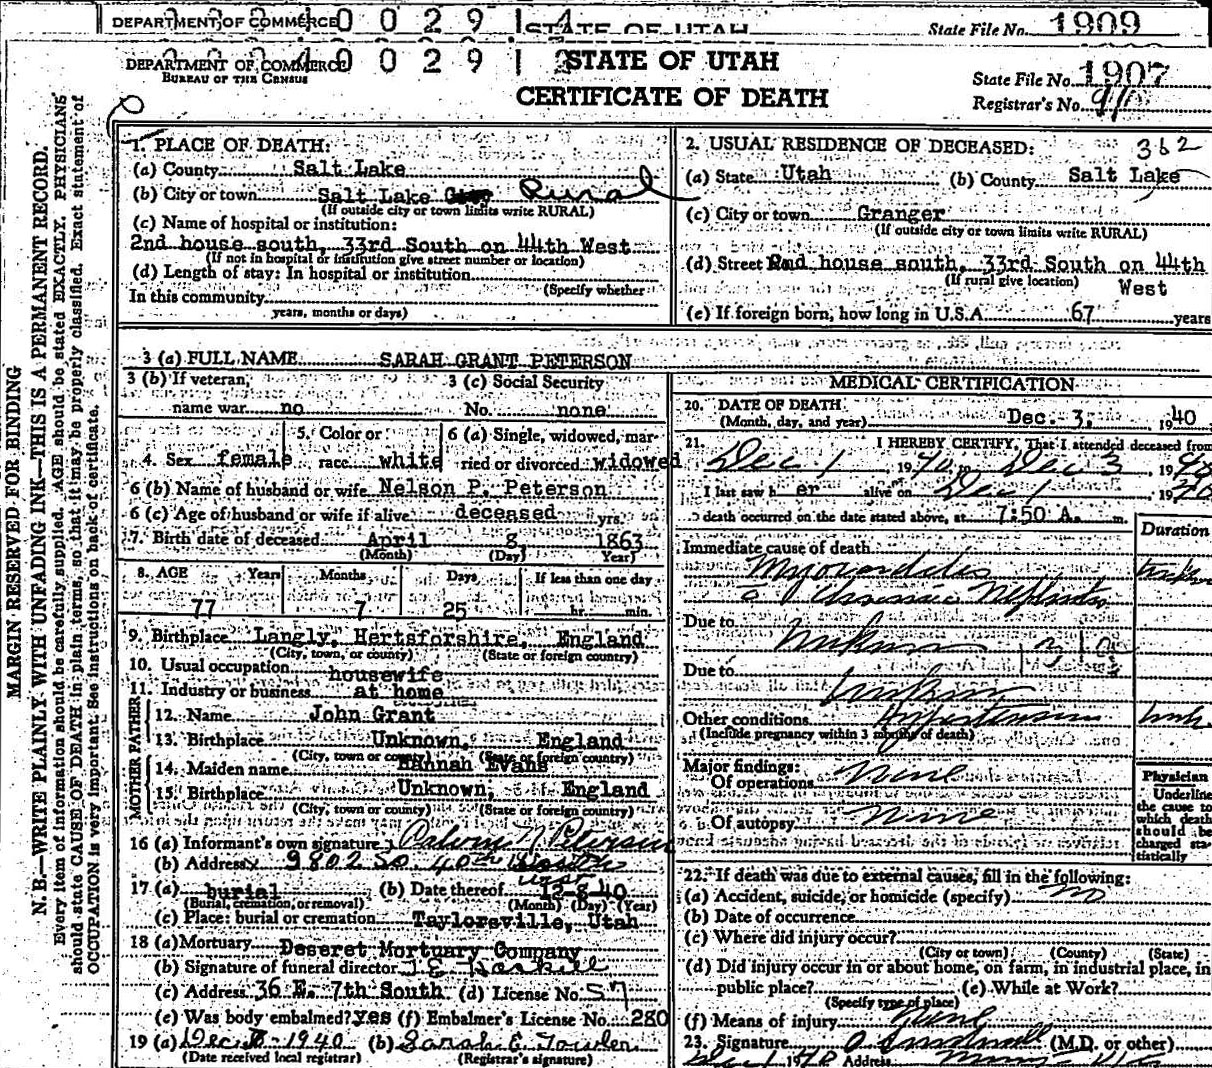 DEPARTMENT OF COMMERCE
STATE OF UTAH
State File No. 1909
DEPARTMENT OF COMMERCE
BUREAU OF THE CENSUS
STATE OF UTAH
CERTIFICATE OF DEATH
State File No. 1907
Registrar's No.
MARGIN RESERVED FOR BINDING
N. B.—WRITE PLAINLY WITH UNFADING INK—THIS IS A PERMANENT RECORD.
Every item of information should be carefully supplied. AGE should be stated EXACTLY. PHYSICIANS
should state CAUSE OF DEATH in plain terms, so that it may be properly classified. Exact statement of
OCCUPATION is very important. See instructions on back of certificate.
1. PLACE OF DEATH:
(a) County Salt Lake
(b) City or town Salt Lake Rural
(If outside city or town limits write RURAL)
(c) Name of hospital or institution:
2nd house south, 33rd South on 44th West
(If not in hospital or institution give street number or location)
(d) Length of stay: In hospital or institution
(Specify whether
In this community
years, months or days)
2. USUAL RESIDENCE OF DECEASED: 362
(a) State Utah (b) County Salt Lake
(c) City or town Granger
(If outside city or town limits write RURAL)
(d) Street 2nd house south, 33rd South on 44th
(If rural give location) West
(e) If foreign born, how long in U.S.A. 67 years
3 (a) FULL NAME SARAH GRANT PETERSON
3 (b) If veteran, 3 (c) Social Security
name war no No. none
4. Sex female 5. Color or race white 6 (a) Single, widowed, married or divorced widowed
6 (b) Name of husband or wife Nelson P. Peterson
6 (c) Age of husband or wife if alive deceased yrs.
7. Birth date of deceased April 8 1863
(Month) (Day) Year)
8. AGE Years Months Days If less than one day
77 7 25 hr. min.
9. Birthplace Langly, Hertsforshire, England
(City, town, or county) (State or foreign country)
10. Usual occupation housewife
11. Industry or business at home
FATHER
12. Name John Grant
13. Birthplace Unknown, England
(City, town or county) (State or foreign country)
MOTHER
14. Maiden name Hannah Evans
15. Birthplace Unknown, England
(City, town or county) (State or foreign country)
16 (a) Informant's own signature Peterson
(b) Address 9802 So. 40th West
17 (a) burial (b) Date thereof 12-8-40
(Burial, cremation, or removal) (Month) (Day) (Year)
(c) Place: burial or cremation Taylorsville, Utah
18 (a) Mortuary Deseret Mortuary Company
(b) Signature of funeral director J.E.
(c) Address 36 E. 7th South (d) License No. 57
(e) Was body embalmed? yes (f) Embalmer's License No. 280
19 (a) Dec. 1940 (b) Sarah E.
(Date received local registrar) (Registrar's signature)
MEDICAL CERTIFICATION
20. DATE OF DEATH
(Month, day, and year) Dec. 3, 1940
21. I HEREBY CERTIFY, That I attended deceased from
Dec 1 1940 to Dec 3 1940
I last saw her alive on Dec 1 1940
death occurred on the date stated above, at 7:50 A. m.
Duration
Immediate cause of death
Myocarditis
Nephritis
Due to Unknown
Due to Unknown
Other conditions Hypertension
(Include pregnancy within 3 months of death)
Major findings:
Of operations None
Of autopsy None
Physician
Underline
the cause to
which death
should be
charged sta-
tistically
22. If death was due to external causes, fill in the following:
(a) Accident, suicide, or homicide (specify) no
(b) Date of occurrence
(c) Where did injury occur?
(City or town) (County) (State)
(d) Did injury occur in or about home, on farm, in industrial place, in
public place? (e) While at Work?
(Specify type of place)
(f) Means of injury None
23. Signature (M.D. or other)
Address